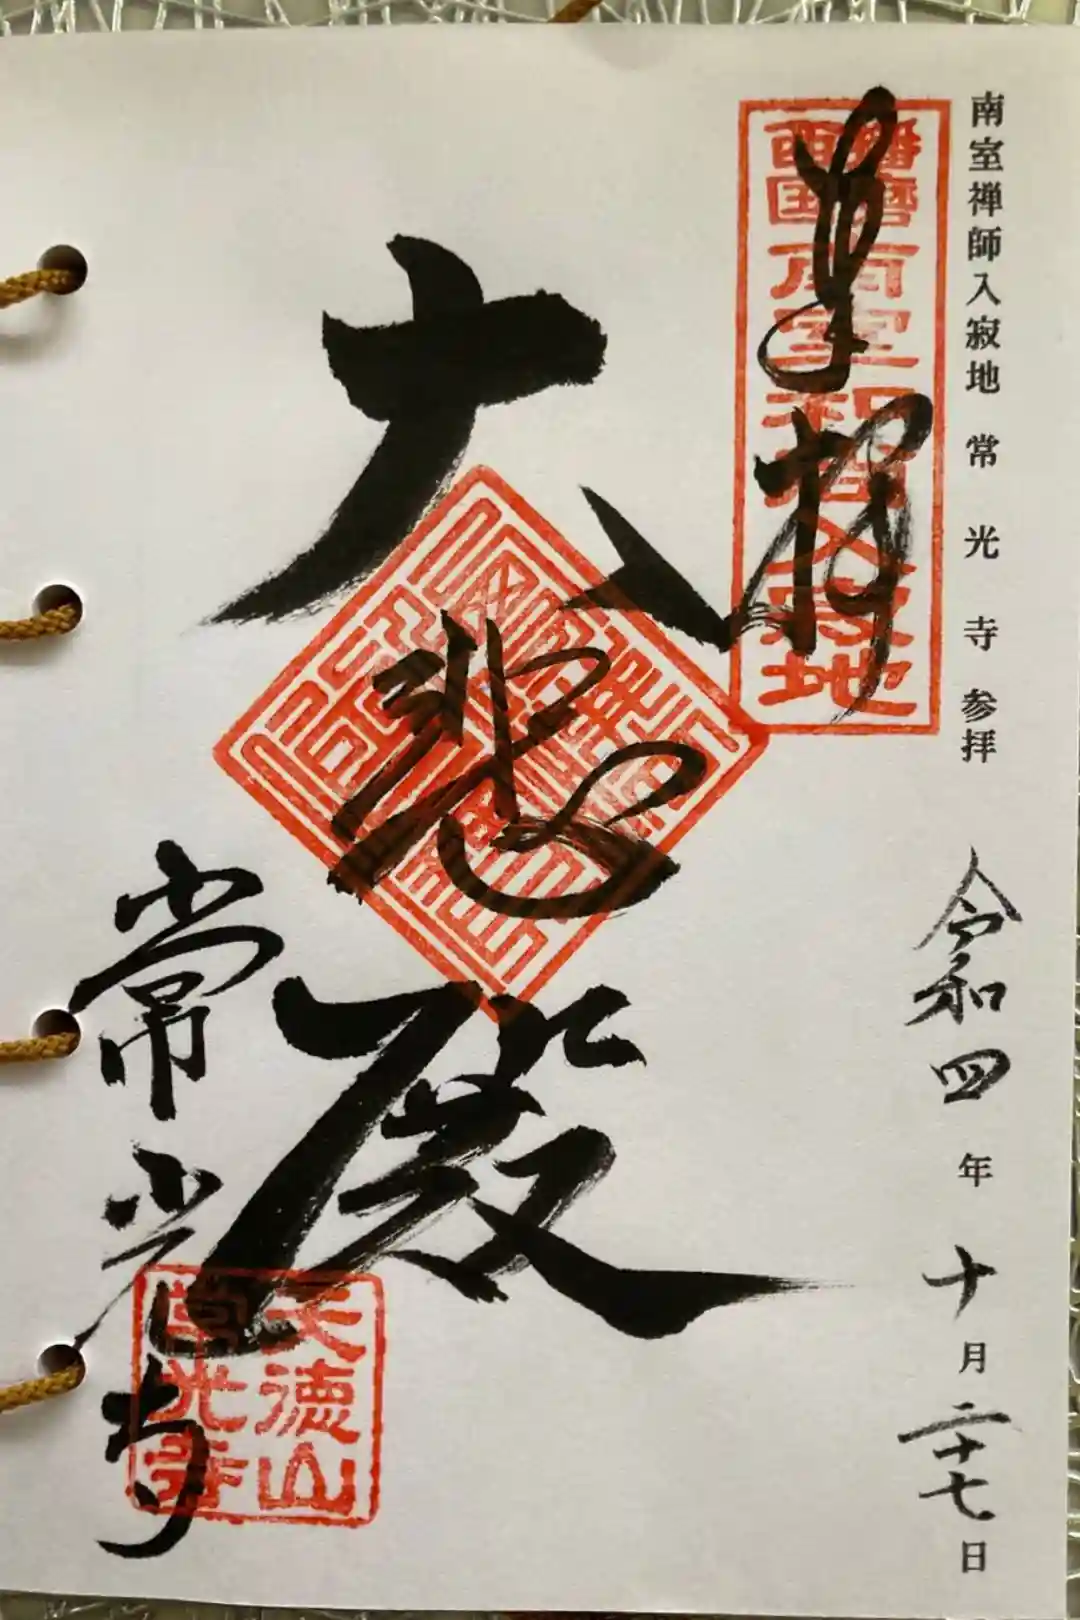 南室禅師入寂地 常光寺参拝 令和四年十月二十七日
奉拝
播磨
西国
南室和尚入寂地
大悲殿
常光寺
天徳山
常光寺